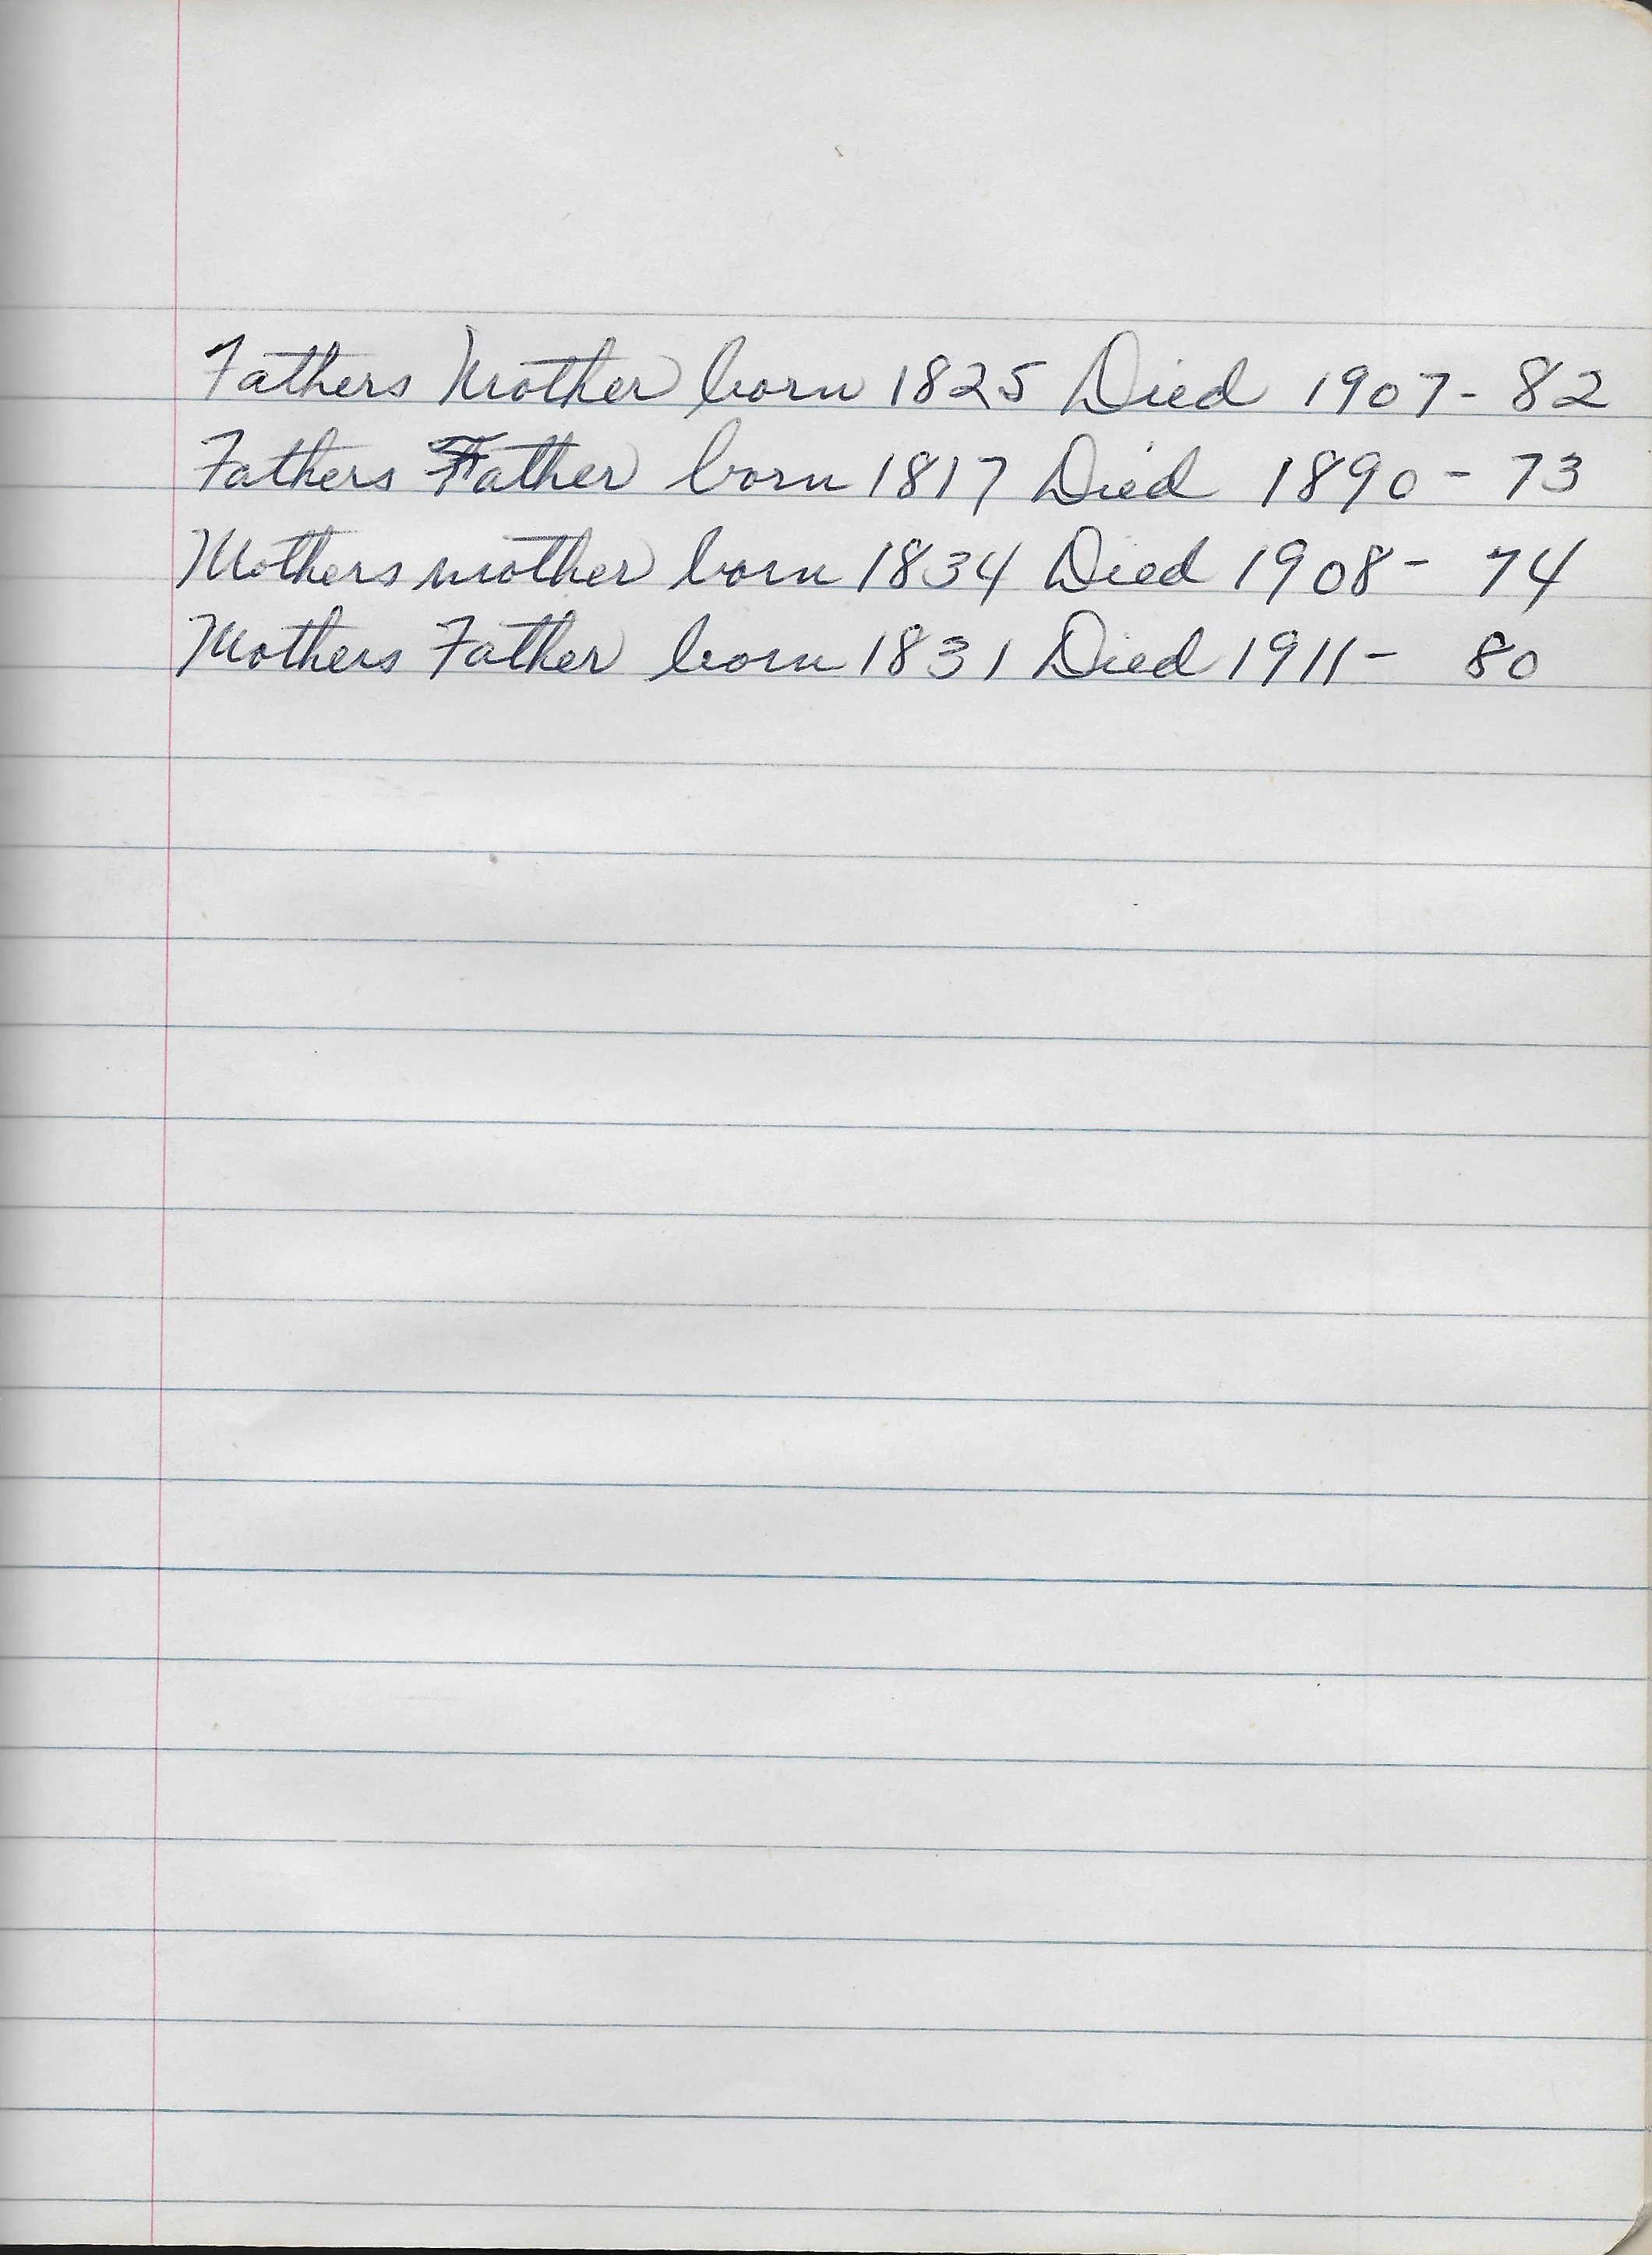 Fathers Mother born 1825 Died 1907 - 82
Fathers Father born 1817 Died 1890 - 73
Mothers mother born 1834 Died 1908 - 74
Mothers Father born 1831 Died 1911 - 80